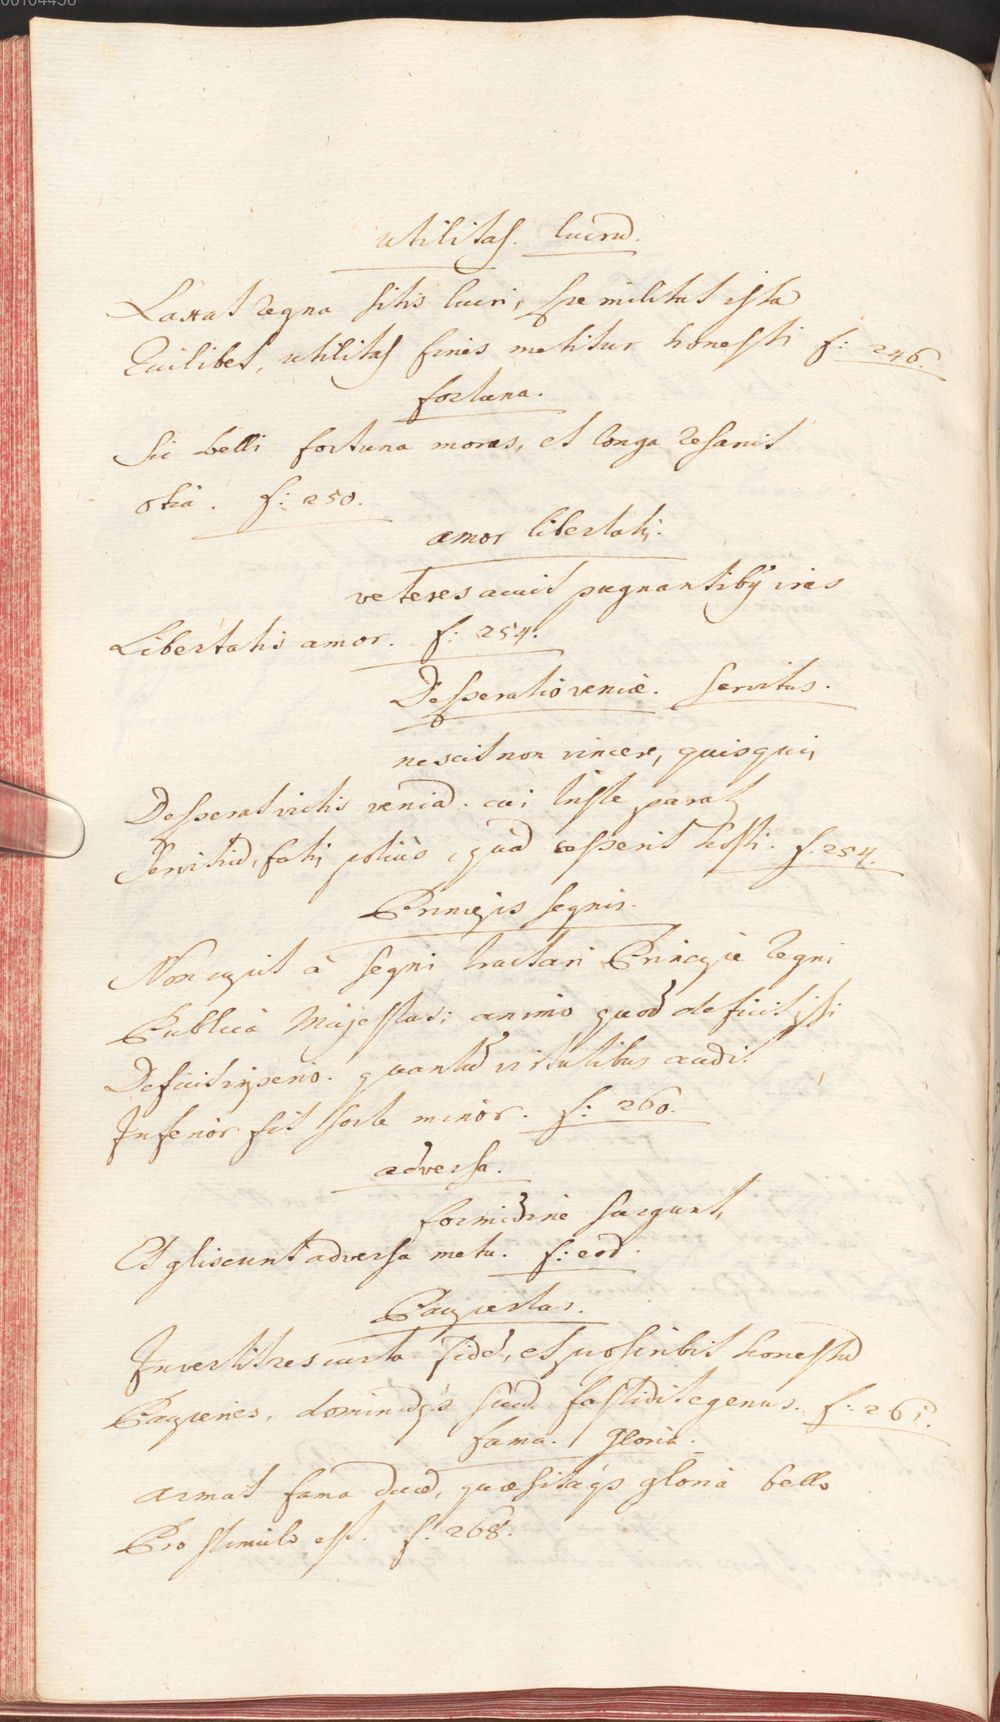 00104456
Utilitas. lucrū.
Laxat regna sitis lucri, spe militat ista
Quilibet, utilitas fines metitur honesti f: 246.
fortuna.
Sic belli fortuna moras, et longa resarcit
otia. f: 250.
amor libertatis.
veteres acuit pugnantibus iras
Libertatis amor. f: 254.
Desperatio veniæ. servitus.
nescit non vincere, quisquis
Desperat victis veniā. cui triste paratur
Servitiū, fatis potius, quā cesserit hosti. f. 254.
Principis segnis.
Non cupit à segni tractari Principe regni
Publica Majestas; animo quod deficit ipsi
Deficit imperio. quantū virtutibus audi.
Inferior fit sorte minor. f: 260.
adversa.
formidine surgunt,
Et gliscunt adversa metu. f: eod.
Paupertas.
Invertit res curta fidē, et proscribit honestū
Pauperies, dominūqs suū fastidit egenus. f. 261.
fama. Gloria.
armat fama ducē, quæsitaqs gloria bello
Pro stimulo est. f. 268.